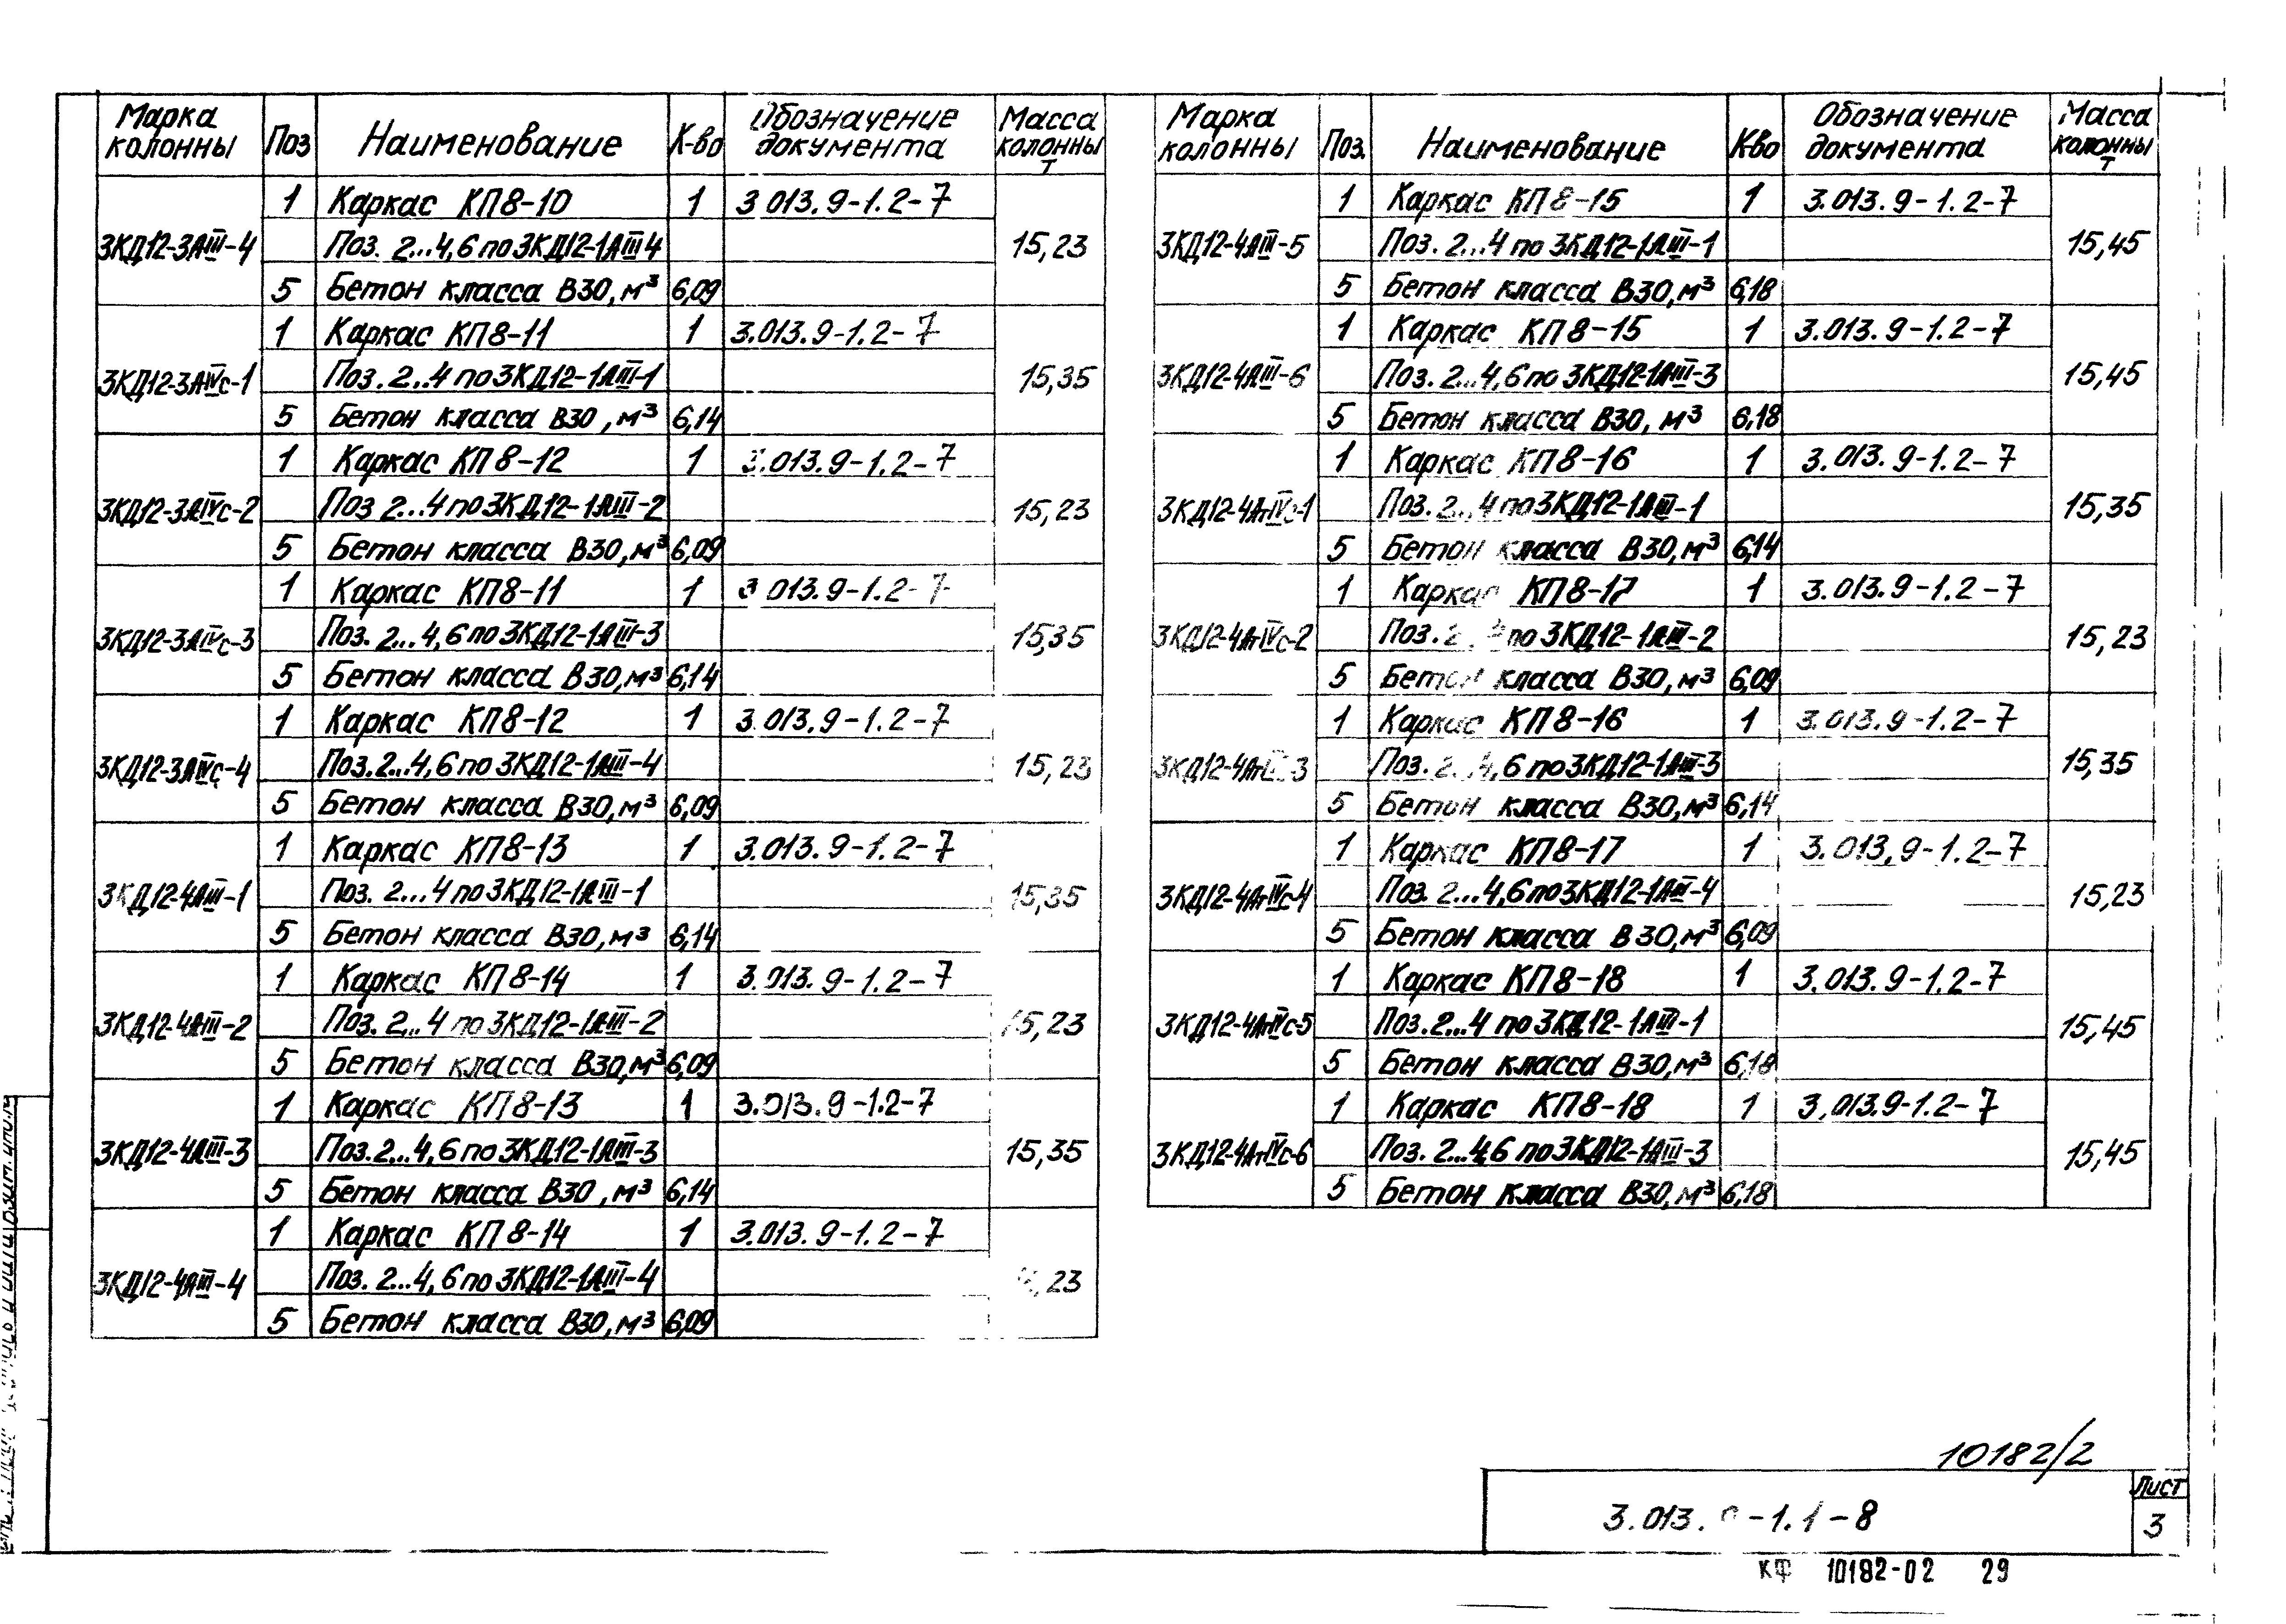 Марка колонны | Поз | Наименование | К-во | Обозначение документа | Масса колонны т
3КД12-3АIII-4 | 1 | Каркас КП8-10 | 1 | 3.013.9-1.2-7 | 15,23
Поз. 2...4,6 по 3КД12-1АIII4
5 | Бетон класса В30, м³ | 6,09
3КД12-3АIVс-1 | 1 | Каркас КП8-11 | 1 | 3.013.9-1.2-7 | 15,35
Поз. 2..4 по 3КД12-1АIII-1
5 | Бетон класса В30, м³ | 6,14
3КД12-3АIVс-2 | 1 | Каркас КП8-12 | 1 | 3.013.9-1.2-7 | 15,23
Поз 2...4 по 3КД12-1АIII-2
5 | Бетон класса В30, м³ | 6,09
3КД12-3АIVс-3 | 1 | Каркас КП8-11 | 1 | 3 013.9-1.2-7 | 15,35
Поз. 2...4,6 по 3КД12-1АIII-3
5 | Бетон класса В30, м³ | 6,14
3КД12-3АIVс-4 | 1 | Каркас КП8-12 | 1 | 3.013.9-1.2-7 | 15,23
Поз. 2...4,6 по 3КД12-1АIII-4
5 | Бетон класса В30, м³ | 6,09
3КД12-4АIII-1 | 1 | Каркас КП8-13 | 1 | 3.013.9-1.2-7 | 15,35
Поз. 2...4 по 3КД12-1АIII-1
5 | Бетон класса В30, м³ | 6,14
3КД12-4АIII-2 | 1 | Каркас КП8-14 | 1 | 3.013.9-1.2-7 | 15,23
Поз. 2...4 по 3КД12-1АIII-2
5 | Бетон класса В30, м³ | 6,09
3КД12-4АIII-3 | 1 | Каркас КП8-13 | 1 | 3.013.9-1.2-7 | 15,35
Поз. 2...4,6 по 3КД12-1АIII-3
5 | Бетон класса В30, м³ | 6,14
3КД12-4АIII-4 | 1 | Каркас КП8-14 | 1 | 3.013.9-1.2-7 | ,23
Поз. 2...4,6 по 3КД12-1АIII-4
5 | Бетон класса В30, м³ | 6,09
Марка колонны | Поз. | Наименование | Кво | Обозначение документа | Масса колонны т
3КД12-4АIII-5 | 1 | Каркас КП8-15 | 1 | 3.013.9-1.2-7 | 15,45
Поз. 2...4 по 3КД12-1АIII-1
5 | Бетон класса В30, м³ | 6,18
3КД12-4АIII-6 | 1 | Каркас КП8-15 | 1 | 3.013.9-1.2-7 | 15,45
Поз. 2...4,6 по 3КД12-1АIII-3
5 | Бетон класса В30, м³ | 6,18
3КД12-4АтIVс-1 | 1 | Каркас КП8-16 | 1 | 3.013.9-1.2-7 | 15,35
Поз. 2...4 по 3КД12-1АIII-1
5 | Бетон класса В30, м³ | 6,14
3КД12-4АтIVс-2 | 1 | Каркас КП8-17 | 1 | 3.013.9-1.2-7 | 15,23
Поз. 2...4 по 3КД12-1АIII-2
5 | Бетон класса В30, м³ | 6,09
1 | Каркас КП8-16 | 1 | 3.013.9-1.2-7 | 15,35
Поз. 2...4,6 по 3КД12-1АIII-3
5 | Бетон класса В30, м³ | 6,14
3КД12-4АтIVс-4 | 1 | Каркас КП8-17 | 1 | 3.013,9-1.2-7 | 15,23
Поз. 2...4,6 по 3КД12-1АIII-4
5 | Бетон класса В30, м³ | 6,09
3КД12-4АтIVс-5 | 1 | Каркас КП8-18 | 1 | 3.013.9-1.2-7 | 15,45
Поз. 2...4 по 3КД12-1АIII-1
5 | Бетон класса В30, м³ | 6,18
3КД12-4АтIVс-6 | 1 | Каркас КП8-18 | 1 | 3,013.9-1.2-7 | 15,45
Поз. 2...4,6 по 3КД12-1АIII-3
5 | Бетон класса В30, м³ | 6,18
10182/2
3.013.9-1.1-8
Лист
3
КФ 10182-02 29